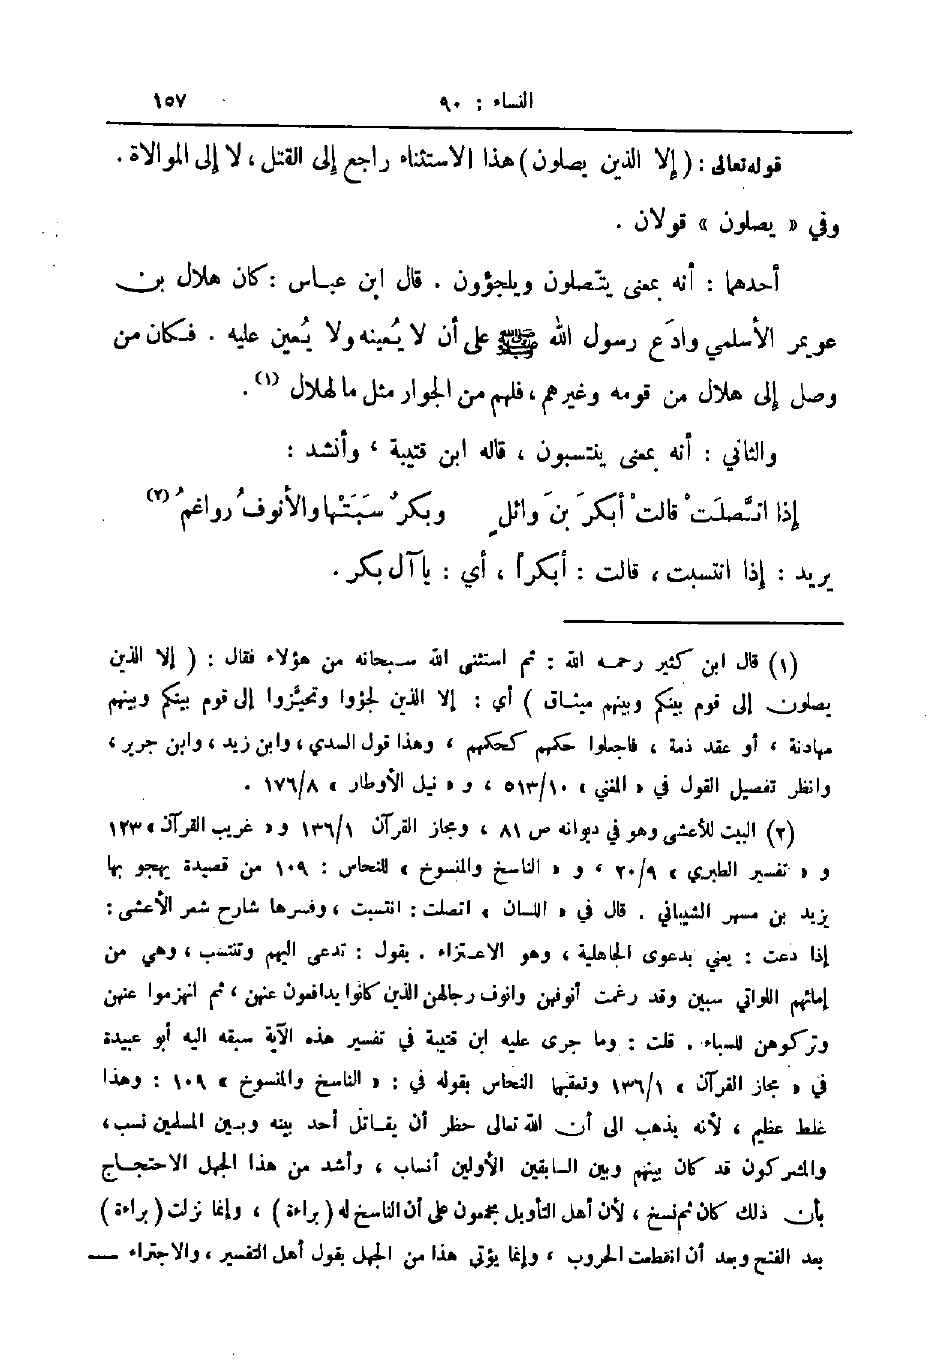 النساء : ٩٠ ١٥٧
قوله تعالى : ( إلا الذين يصلون ) هذا الاستثناء راجع إلى القتل ، لا إلى الموالاة .
وفي « يصلون » قولان .
أحدهما : أنه بمعنى يتّصلون ويلجؤون . قال ابن عباس : كان هلال بن
عويمر الأسلمي وادَع رسول الله ﷺ على أن لا يُعينه ولا يُعين عليه . فكان من
وصل إلى هلال من قومه وغيرهم ، فلهم من الجوار مثل ما لهلال (١) .
والثاني : أنه بمعنى ينتسبون ، قاله ابن قتيبة ، وأنشد :
إذا اتَّصلَتْ قالتْ أبكرَ بنَ وائلٍ وبكرٌ سَبَتْها والأنوفُ رواغمُ (٢)
يريد : إذا انتسبت ، قالت : أبكراً ، أي : يا آل بكر .
(١) قال ابن كثير رحمه الله : ثم استثنى الله سبحانه من هؤلاء فقال : ( إلا الذين
يصلون إلى قوم بينكم وبينهم ميثاق ) أي : إلا الذين لجؤوا وتحيَّزوا إلى قوم بينكم وبينهم
مهادنة ، أو عقد ذمة ، فاجعلوا حكمهم كحكمهم ، وهذا قول السدي ، وابن زيد ، وابن جرير ،
وانظر تفصيل القول في « المغني » ٥١٣/١٠ ، و « نيل الأوطار » ١٧٦/٨ .
(٢) البيت للأعشى وهو في ديوانه ص ٨١ ، ومجاز القرآن ١٣٦/١ و « غريب القرآن » ١٢٣
و « تفسير الطبري » ٢٠/٩ ، و « الناسخ والمنسوخ » للنحاس : ١٠٩ من قصيدة يهجو بها
يزيد بن مسهر الشيباني . قال في « اللسان » اتصلت : انتسبت ، وفسرها شارح شعر الأعشى :
إذا دعت : يعني بدعوى الجاهلية ، وهو الاعتزاء . يقول : تدعى اليهم وتنتسب ، وهي من
إمائهم اللواتي سبين وقد رغمت أنوفهن وانوف رجالهن الذين كانوا يدافعون عنهن ، ثم انهزموا عنهن
وتركوهن للسباء . قلت : وما جرى عليه ابن قتيبة في تفسير هذه الآية سبقه اليه أبو عبيدة
في « مجاز القرآن » ١٣٦/١ وتعقبها النحاس بقوله في : « الناسخ والمنسوخ » ١٠٩ : وهذا
غلط عظيم ، لأنه يذهب الى أن الله تعالى حظر أن يقاتل أحد بينه وبين المسلمين نسب ،
والمشركون قد كان بينهم وبين السابقين الأولين أنساب ، وأشد من هذا الجهل الاحتجاج
بأن ذلك كان ثم نسخ ، لأن أهل التأويل مجمعون على أن الناسخ له ( براءة ) ، وإنما نزلت ( براءة )
بعد الفتح وبعد أن انقطعت الحروب ، وإنما يؤتي هذا من الجهل بقول أهل التفسير ، والاجتراء —